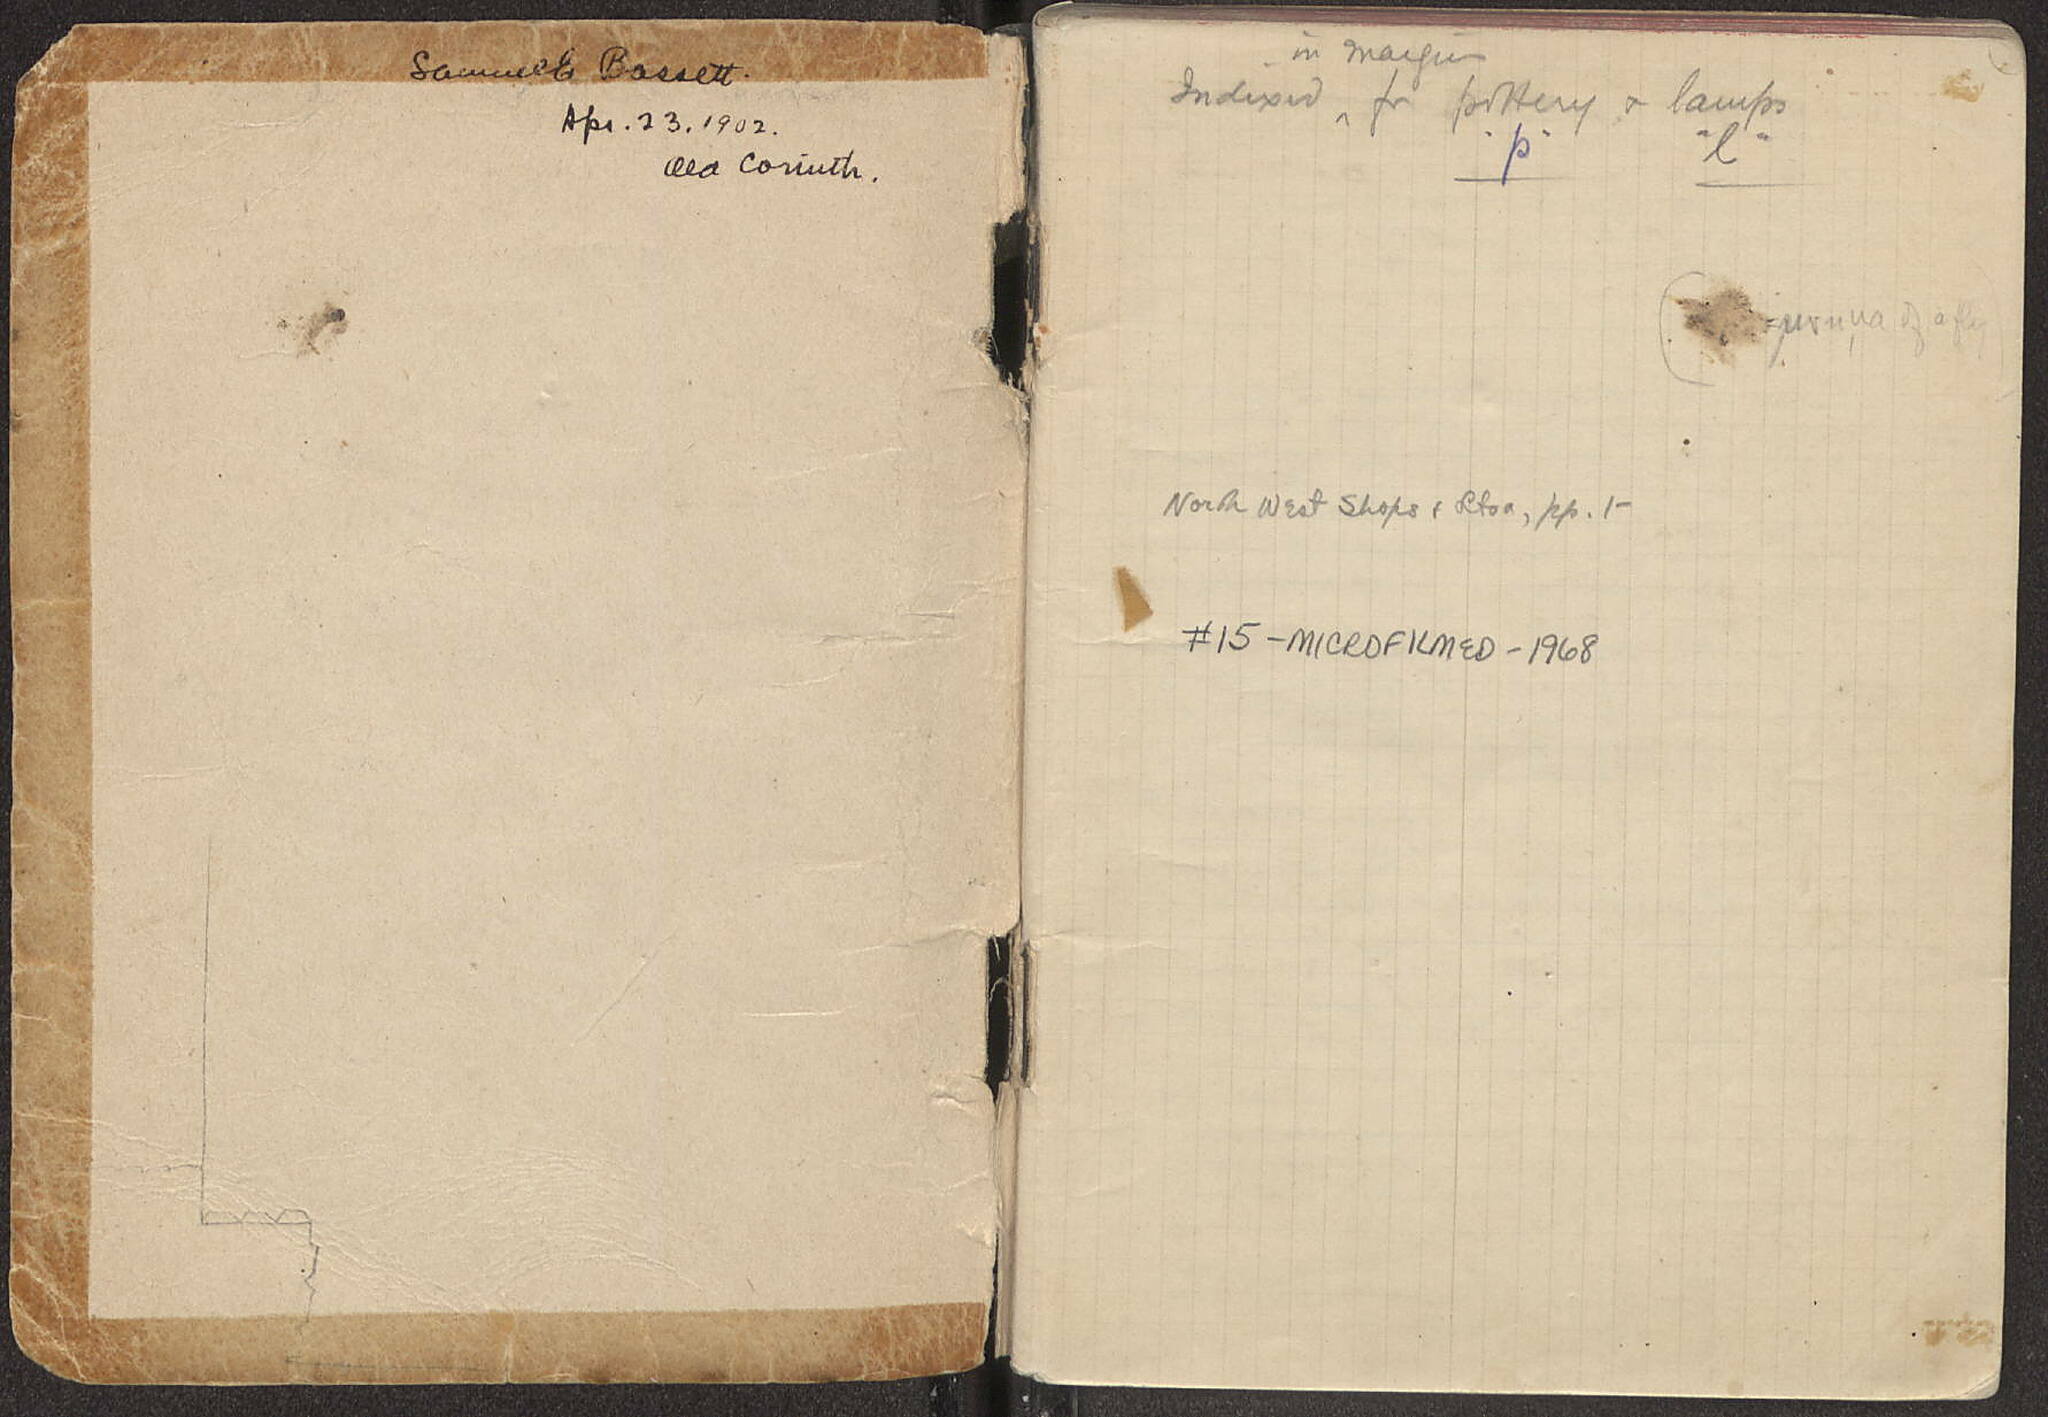 Samuel E Bassett.
Apr. 23. 1902.
Old Corinth.
in margin
Indexed ^ for pottery & lamps
"p" "l"
of a fly
North West Shops & Stoa, pp. 1-
#15 - MICROFILMED - 1968